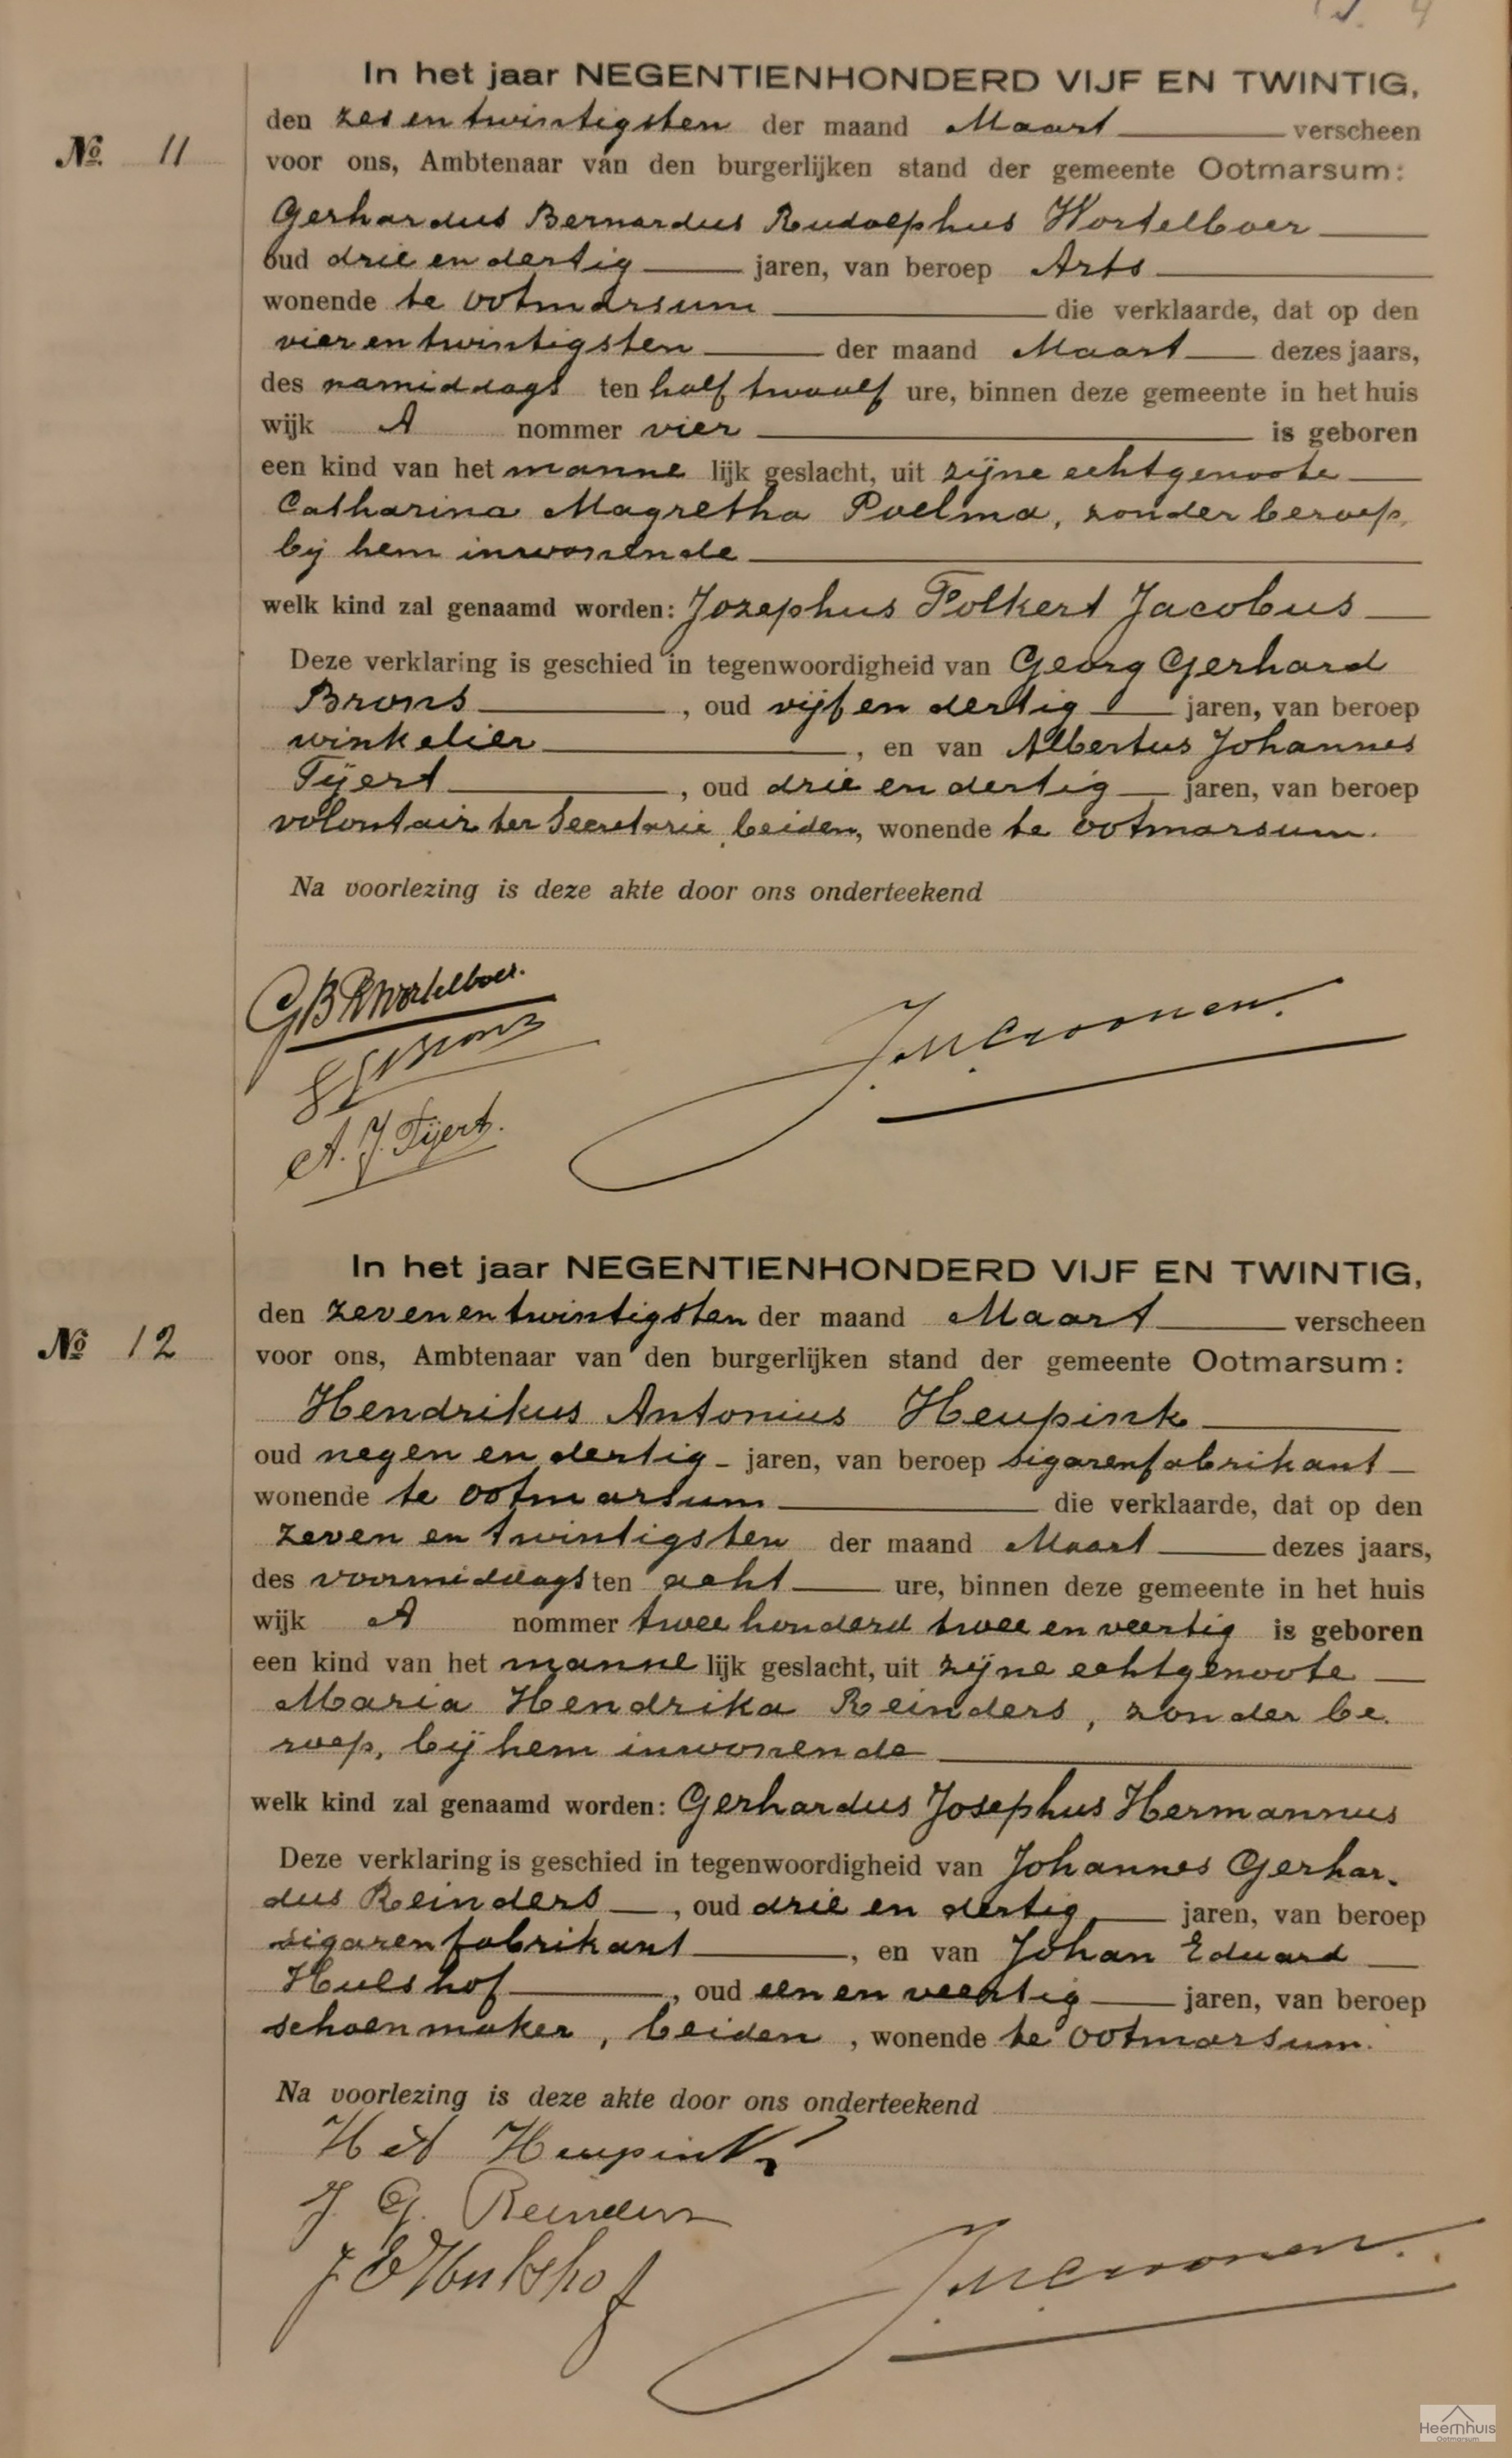 In het jaar NEGENTIENHONDERD VIJF EN TWINTIG,
den zes en twintigsten der maand Maart verscheen
No. 11
voor ons, Ambtenaar van den burgerlijken stand der gemeente Ootmarsum:
Gerhardus Bernardus Rudolphus Wortelboer
oud drie en dertig jaren, van beroep Arts
wonende te Ootmarsum die verklaarde, dat op den
vier en twintigsten der maand Maart dezes jaars,
des namiddags ten half twaalf ure, binnen deze gemeente in het huis
wijk A nommer vier is geboren
een kind van het manne lijk geslacht, uit zijne echtgenoote
Catharina Magretha Poelma, zonder beroep,
bij hem inwonende
welk kind zal genaamd worden: Jozephus Folkert Jacobus
Deze verklaring is geschied in tegenwoordigheid van Georg Gerhard
Brons, oud vijf en dertig jaren, van beroep
winkelier, en van Albertus Johannes
Tijert, oud drie en dertig jaren, van beroep
volontair ter Secretarie, beiden, wonende te Ootmarsum.
Na voorlezing is deze akte door ons onderteekend
GBR Wortelboer.
GG Brons
A. J. Tijert.
In het jaar NEGENTIENHONDERD VIJF EN TWINTIG,
den zeven en twintigsten der maand Maart verscheen
No 12
voor ons, Ambtenaar van den burgerlijken stand der gemeente Ootmarsum:
Hendrikus Antonius Heupink
oud negen en dertig jaren, van beroep sigarenfabrikant
wonende te Ootmarsum die verklaarde, dat op den
zeven en twintigsten der maand Maart dezes jaars,
des voormiddags ten acht ure, binnen deze gemeente in het huis
wijk A nommer twee honderd twee en veertig is geboren
een kind van het manne lijk geslacht, uit zijne echtgenoote
Maria Hendrika Reinders, zonder be-
roep, bij hem inwonende
welk kind zal genaamd worden: Gerhardus Josephus Hermannus
Deze verklaring is geschied in tegenwoordigheid van Johannes Gerhar-
dus Reinders, oud drie en dertig jaren, van beroep
sigarenfabrikant, en van Johan Eduard
Hulshof, oud een en veertig jaren, van beroep
schoenmaker, beiden, wonende te Ootmarsum.
Na voorlezing is deze akte door ons onderteekend
H A Heupink
J. G. Reinders
J E Hulshof
Heemhuis
Ootmarsum